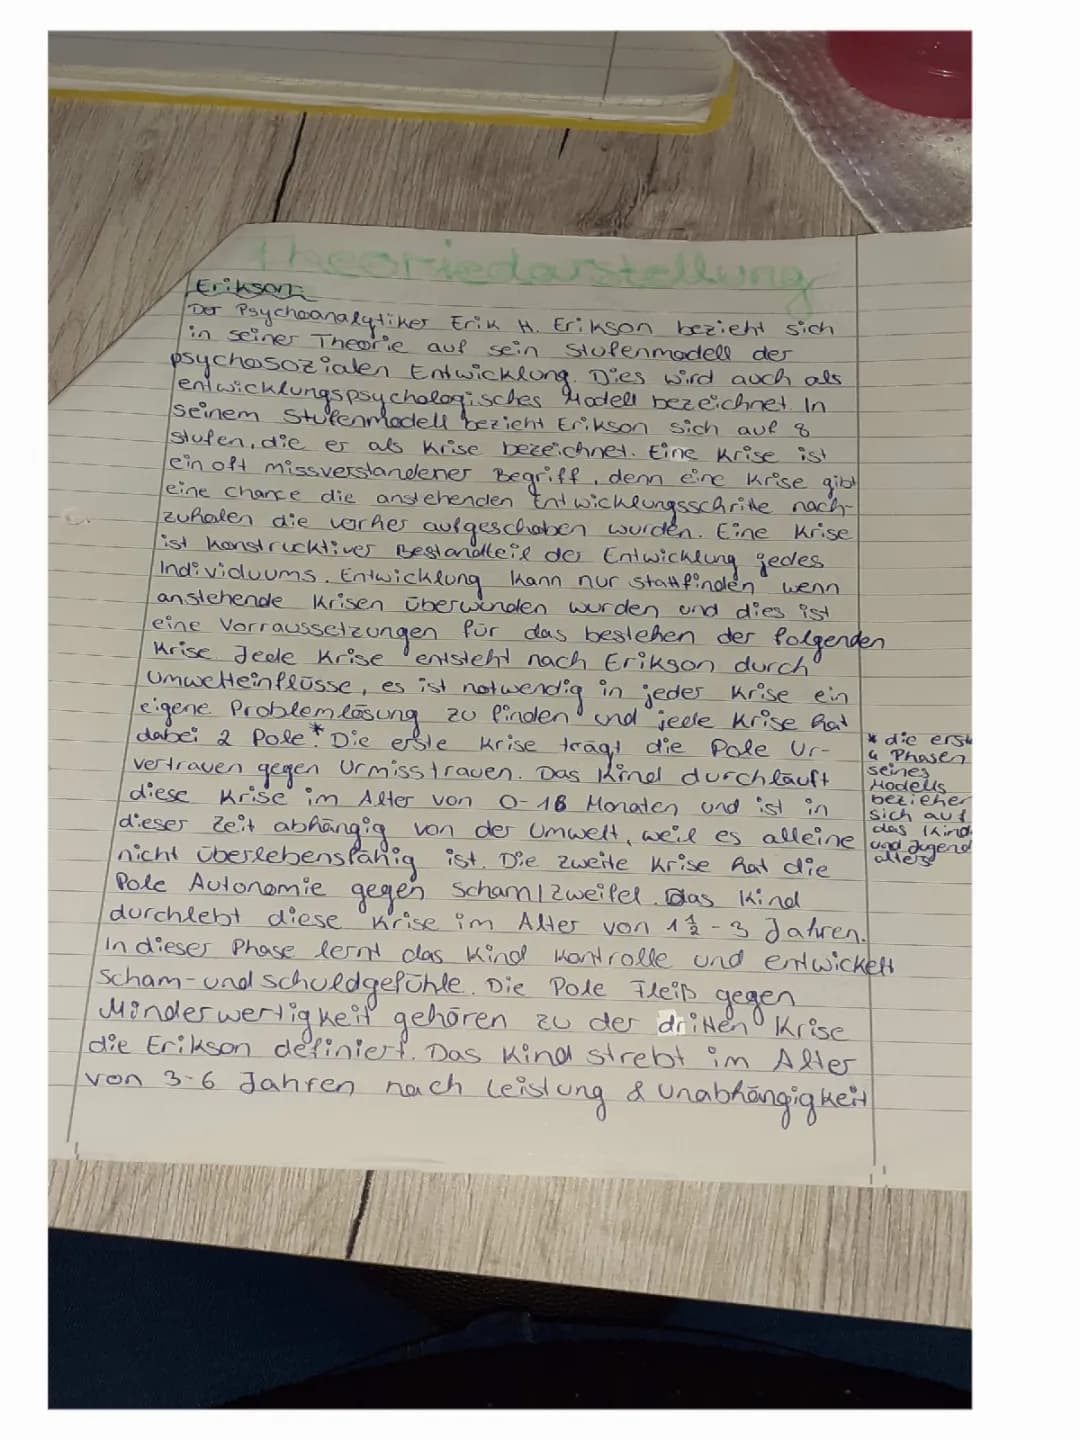 Theoriedarstellung
Erikson:
Der Psychoanalytiker Erik H. Erikson bezieht sich
in seiner Theorie auf sein Stufenmodell der
psychosozialen Entwicklung. Dies wird auch als
entwicklungspsychologisches Modell bezeichnet. In
seinem Stufenmodell bezieht Erikson sich auf 8
stufen, die er als Krise bezeichnet. Eine Krise ist
ein oft missverstandener Begriff, denn eine Krise gibt
eine Chance die anstehenden Entwicklungsschritte nach-
zuholen die vorher aufgeschoben wurden. Eine Krise
ist konstrucktiver Bestandteil der Entwicklung jedes
Individuums. Entwicklung kann nur stattfinden wenn
anstehende Krisen überwinden wurden und dies ist
eine Vorraussetzungen für das bestehen der folgenden
Krise Jede Krise entsteht nach Erikson durch
Umwelteinflüsse, es ist notwendig in jeder Krise ein
eigene Problemlösung zu finden und jede Krise hat
dabei 2 Pole.* Die erste Krise trägt die Pole Ur-
vertrauen gegen Urmisstrauen. Das Kind durchläuft
diese Krise im Alter von 0-18 Monaten und ist in
dieser Zeit abhängig von der Umwelt, weil es alleine
nicht überlebensfähig ist. Die zweite Krise hat die
Pole Autonomie gegen Scham/Zweifel. Das Kind
durchlebt diese Krise im Alter von 1½ - 3 Jahren.
In dieser Phase lernt das Kind Kontrolle und entwickelt
Scham- und Schuldgefühle. Die Pole Fleiß gegen
Minderwertigkeit gehören zu der dritten Krise
die Erikson definiert. Das Kind strebt im Alter
von 3-6 Jahren nach Leistung & Unabhängigkeit
* die erst
4 Phasen
seines
Modells
beziehen
sich auf
das Kind
und Jugend
alters